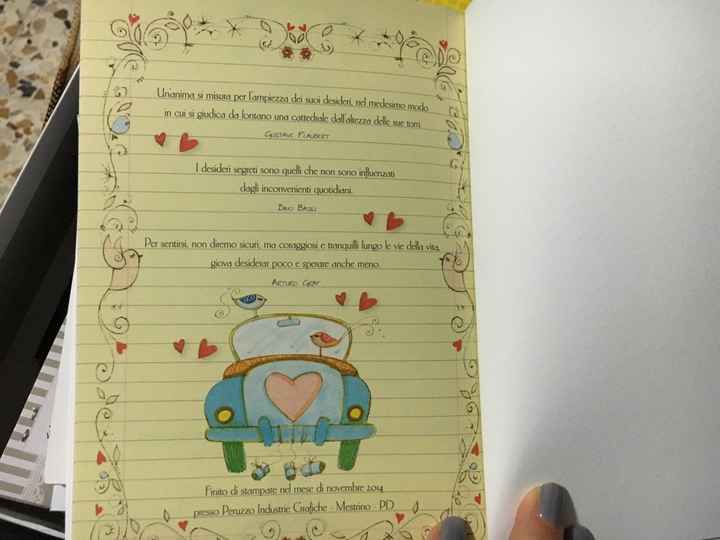 Un'anima si misura per l'ampiezza dei suoi desideri, nel medesimo modo
in cui si giudica da lontano una cattedrale dall'altezza delle sue torri.
Gustave Flaubert
I desideri segreti sono quelli che non sono influenzati
dagli inconvenienti quotidiani.
Dino Basili
Per sentirsi, non diremo sicuri, ma coraggiosi e tranquilli lungo le vie della vita,
giova desiderar poco e sperare anche meno.
Arturo Graf
Finito di stampare nel mese di novembre 2014
presso Peruzzo Industrie Grafiche - Mestrino - PD